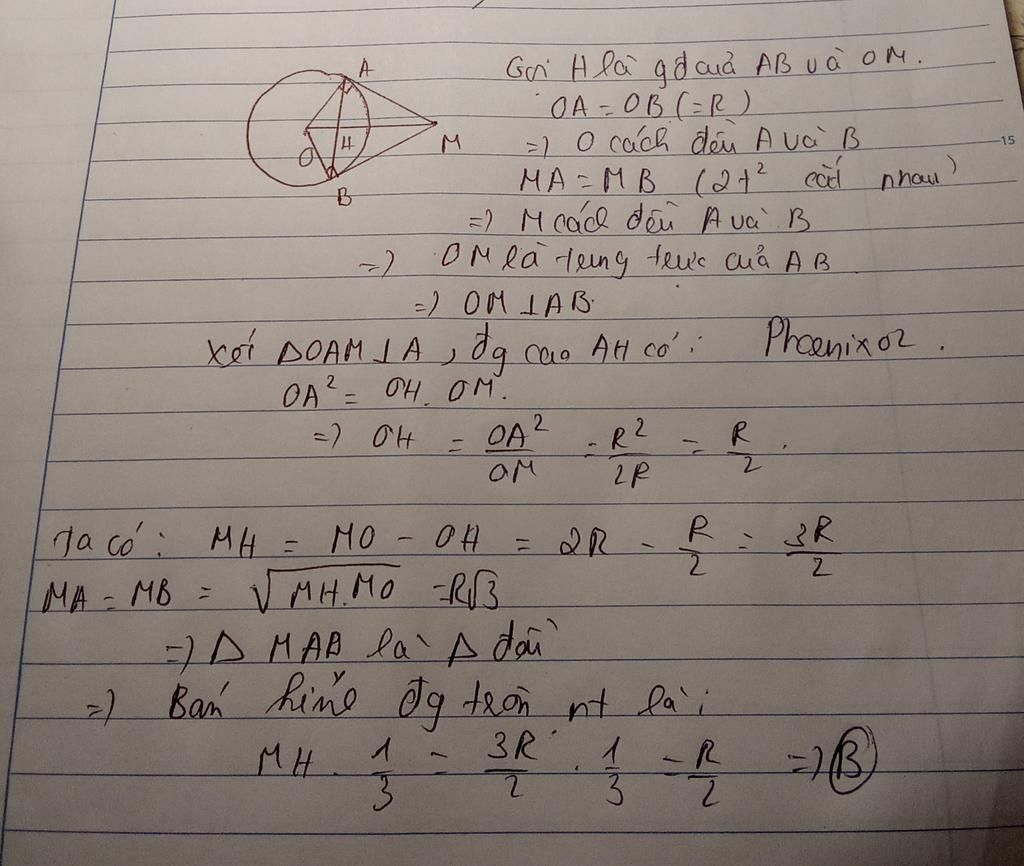 A
O
H
M
B
Gọi H là gđ cuả AB và OM.
OA = OB (=R)
=) O cách đều A và B
15
MA = MB (2t² cắt nhau)
=) M cách đều A và B
=) OM là trung trực cuả AB
=) OM ⊥ AB.
Xét ΔOAM ⊥ A, đg cao AH có: Phoenix02.
OA² = OH. OM.
=) OH = OA²/OM = R²/2R = R/2.
Ta có: MH = MO - OH = 2R - R/2 = 3R/2
MA = MB = √MH.MO = R√3
=) Δ MAB là Δ đều
=) Bán kính đg tròn nt là:
MH. 1/3 = 3R/2 . 1/3 = R/2 =) B